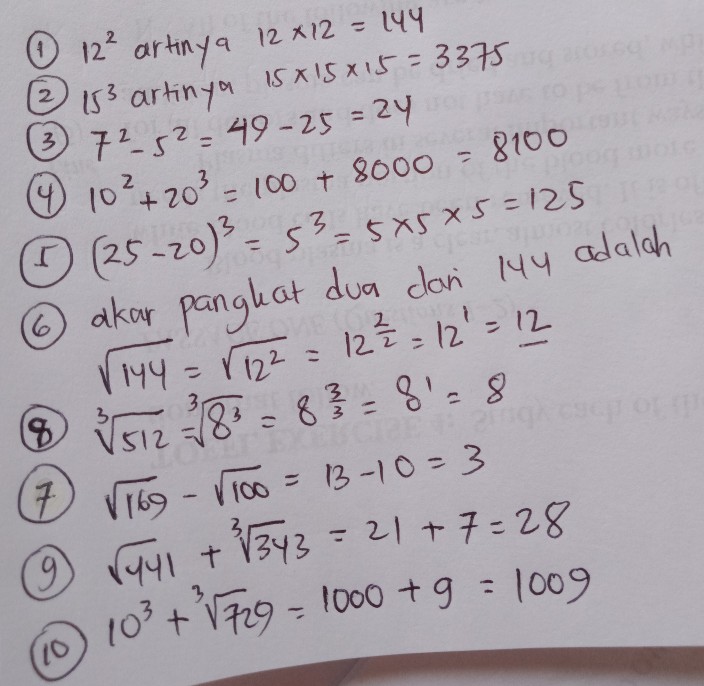 ① 12² artinya 12 × 12 = 144
② 15³ artinya 15 × 15 × 15 = 3375
③ 7² - 5² = 49 - 25 = 24
④ 10² + 20³ = 100 + 8000 = 8100
⑤ (25 - 20)³ = 5³ = 5 × 5 × 5 = 125
⑥ akar pangkat dua dari 144 adalah
√144 = √12² = 12^(2/2) = 12¹ = 12
⑧ ³√512 = ³√8³ = 8^(3/3) = 8¹ = 8
⑦ √169 - √100 = 13 - 10 = 3
⑨ √441 + ³√343 = 21 + 7 = 28
⑩ 10³ + ³√729 = 1000 + 9 = 1009